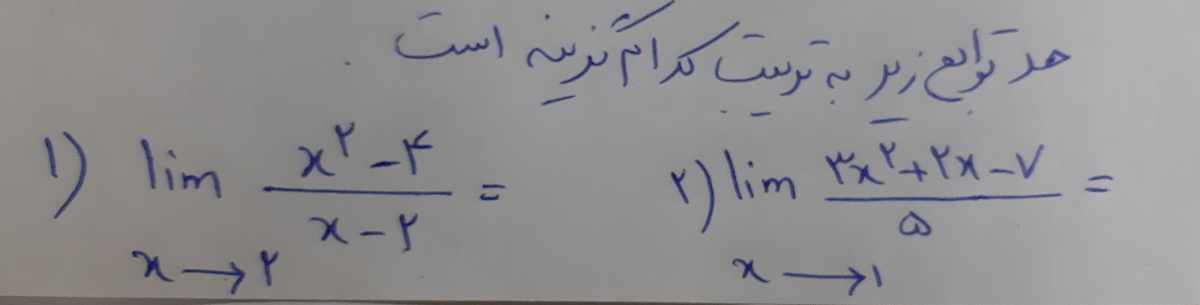 حد توابع زیر به ترتیب کدام گزینه است.
۱) lim x→۲ (x^۲ - ۴)/(x - ۲) =
۲) lim x→۱ (۳x^۲ + ۲x - ۷)/۵ =